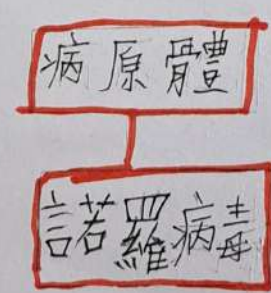 病原體
諾羅病毒